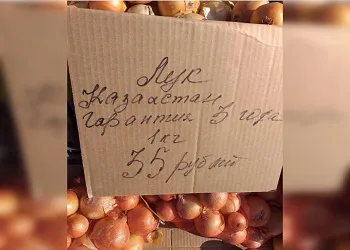 Лук
Казахстан
гарантия 3 года
1 кг
35 рублей